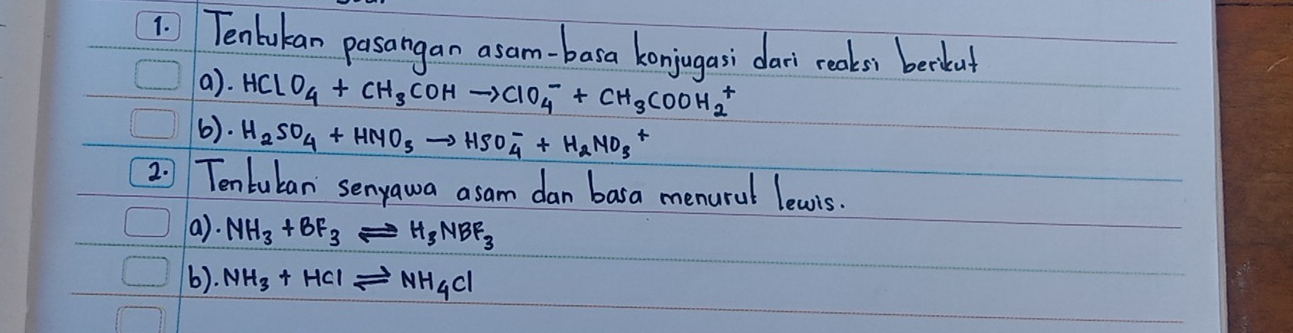 1. Tentukan pasangan asam-basa konjugasi dari reaksi berikut
a). HClO₄ + CH₃COH → ClO₄⁻ + CH₃COOH₂⁺
b). H₂SO₄ + HNO₃ → HSO₄⁻ + H₂NO₃⁺
2. Tentukan senyawa asam dan basa menurut lewis.
a). NH₃ + BF₃ ⇌ H₃NBF₃
b). NH₃ + HCl ⇌ NH₄Cl